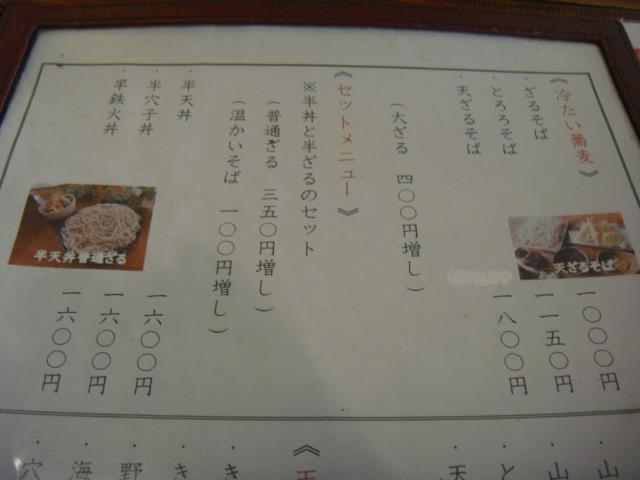 《冷たい蕎麦》
・ざるそば 一〇〇〇円
・とろろそば 一一五〇円
・天ざるそば 一八〇〇円
（大ざる 四〇〇円増し）
天ざるそば
《セットメニュー》
※半丼と半ざるのセット
（普通ざる 三五〇円増し）
（温かいそば 一〇〇円増し）
・半天丼 一六〇〇円
・半穴子丼 一六〇〇円
・半鉄火丼 一六〇〇円
半天丼普通ざる
・山
・山
・と
・天
《
・き
・き
・野
・海
・穴